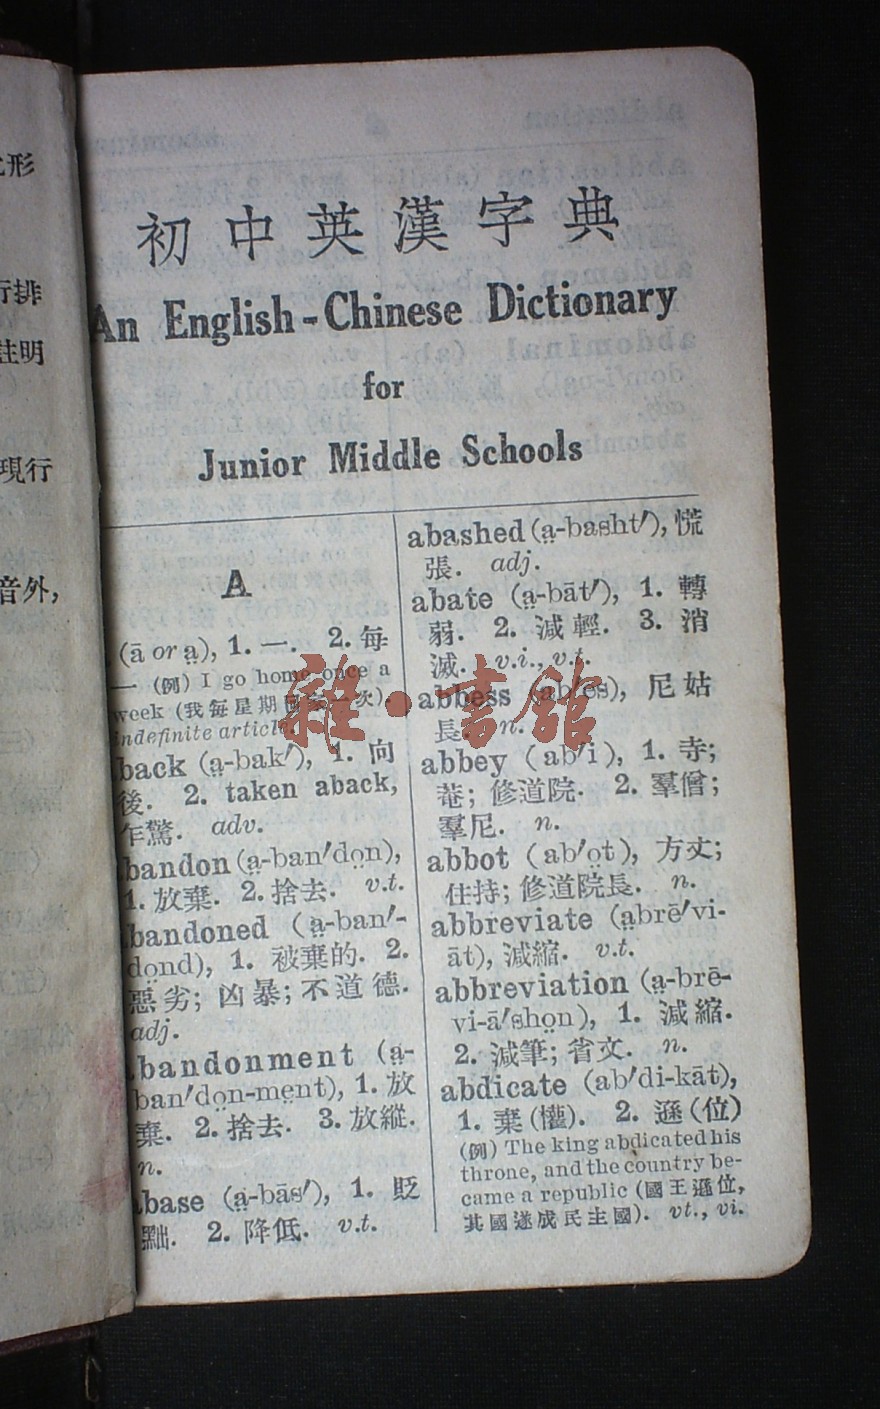 形
行排
註明
現行
音外,
初中英漢字典
An English-Chinese Dictionary
for
Junior Middle Schools
A
(ā or ạ), 1. 一. 2. 每
一 (例) I go home once a
week (我每星期回家一次).
indefinite article.
back (ạ-bak′), 1. 向
後. 2. taken aback,
乍驚. adv.
bandon (ạ-ban′dọn),
1. 放棄. 2. 捨去. v.t.
bandoned (ạ-ban′-
dọnd), 1. 被棄的. 2.
惡劣; 凶暴; 不道德.
adj.
bandonment (ạ-
ban′dọn-mẹnt), 1. 放
棄. 2. 捨去. 3. 放縱.
n.
base (ạ-bās′), 1. 貶
黜. 2. 降低. v.t.
abashed (ạ-basht′), 慌
張. adj.
abate (ạ-bāt′), 1. 轉
弱. 2. 減輕. 3. 消
滅. v.i., v.t.
abbess (ab′es), 尼姑
長. n.
abbey (ab′i), 1. 寺;
菴; 修道院. 2. 羣僧;
羣尼. n.
abbot (ab′ọt), 方丈;
住持; 修道院長. n.
abbreviate (ạbrē′vi-
āt), 減縮. v.t.
abbreviation (ạ-brē-
vi-ā′shọn), 1. 減縮.
2. 減筆; 省文. n.
abdicate (ab′di-kāt),
1. 棄(權). 2. 遜(位)
(例) The king abdicated his
throne, and the country be-
came a republic (國王遜位,
其國遂成民主國). vt., vi.
雜·書館